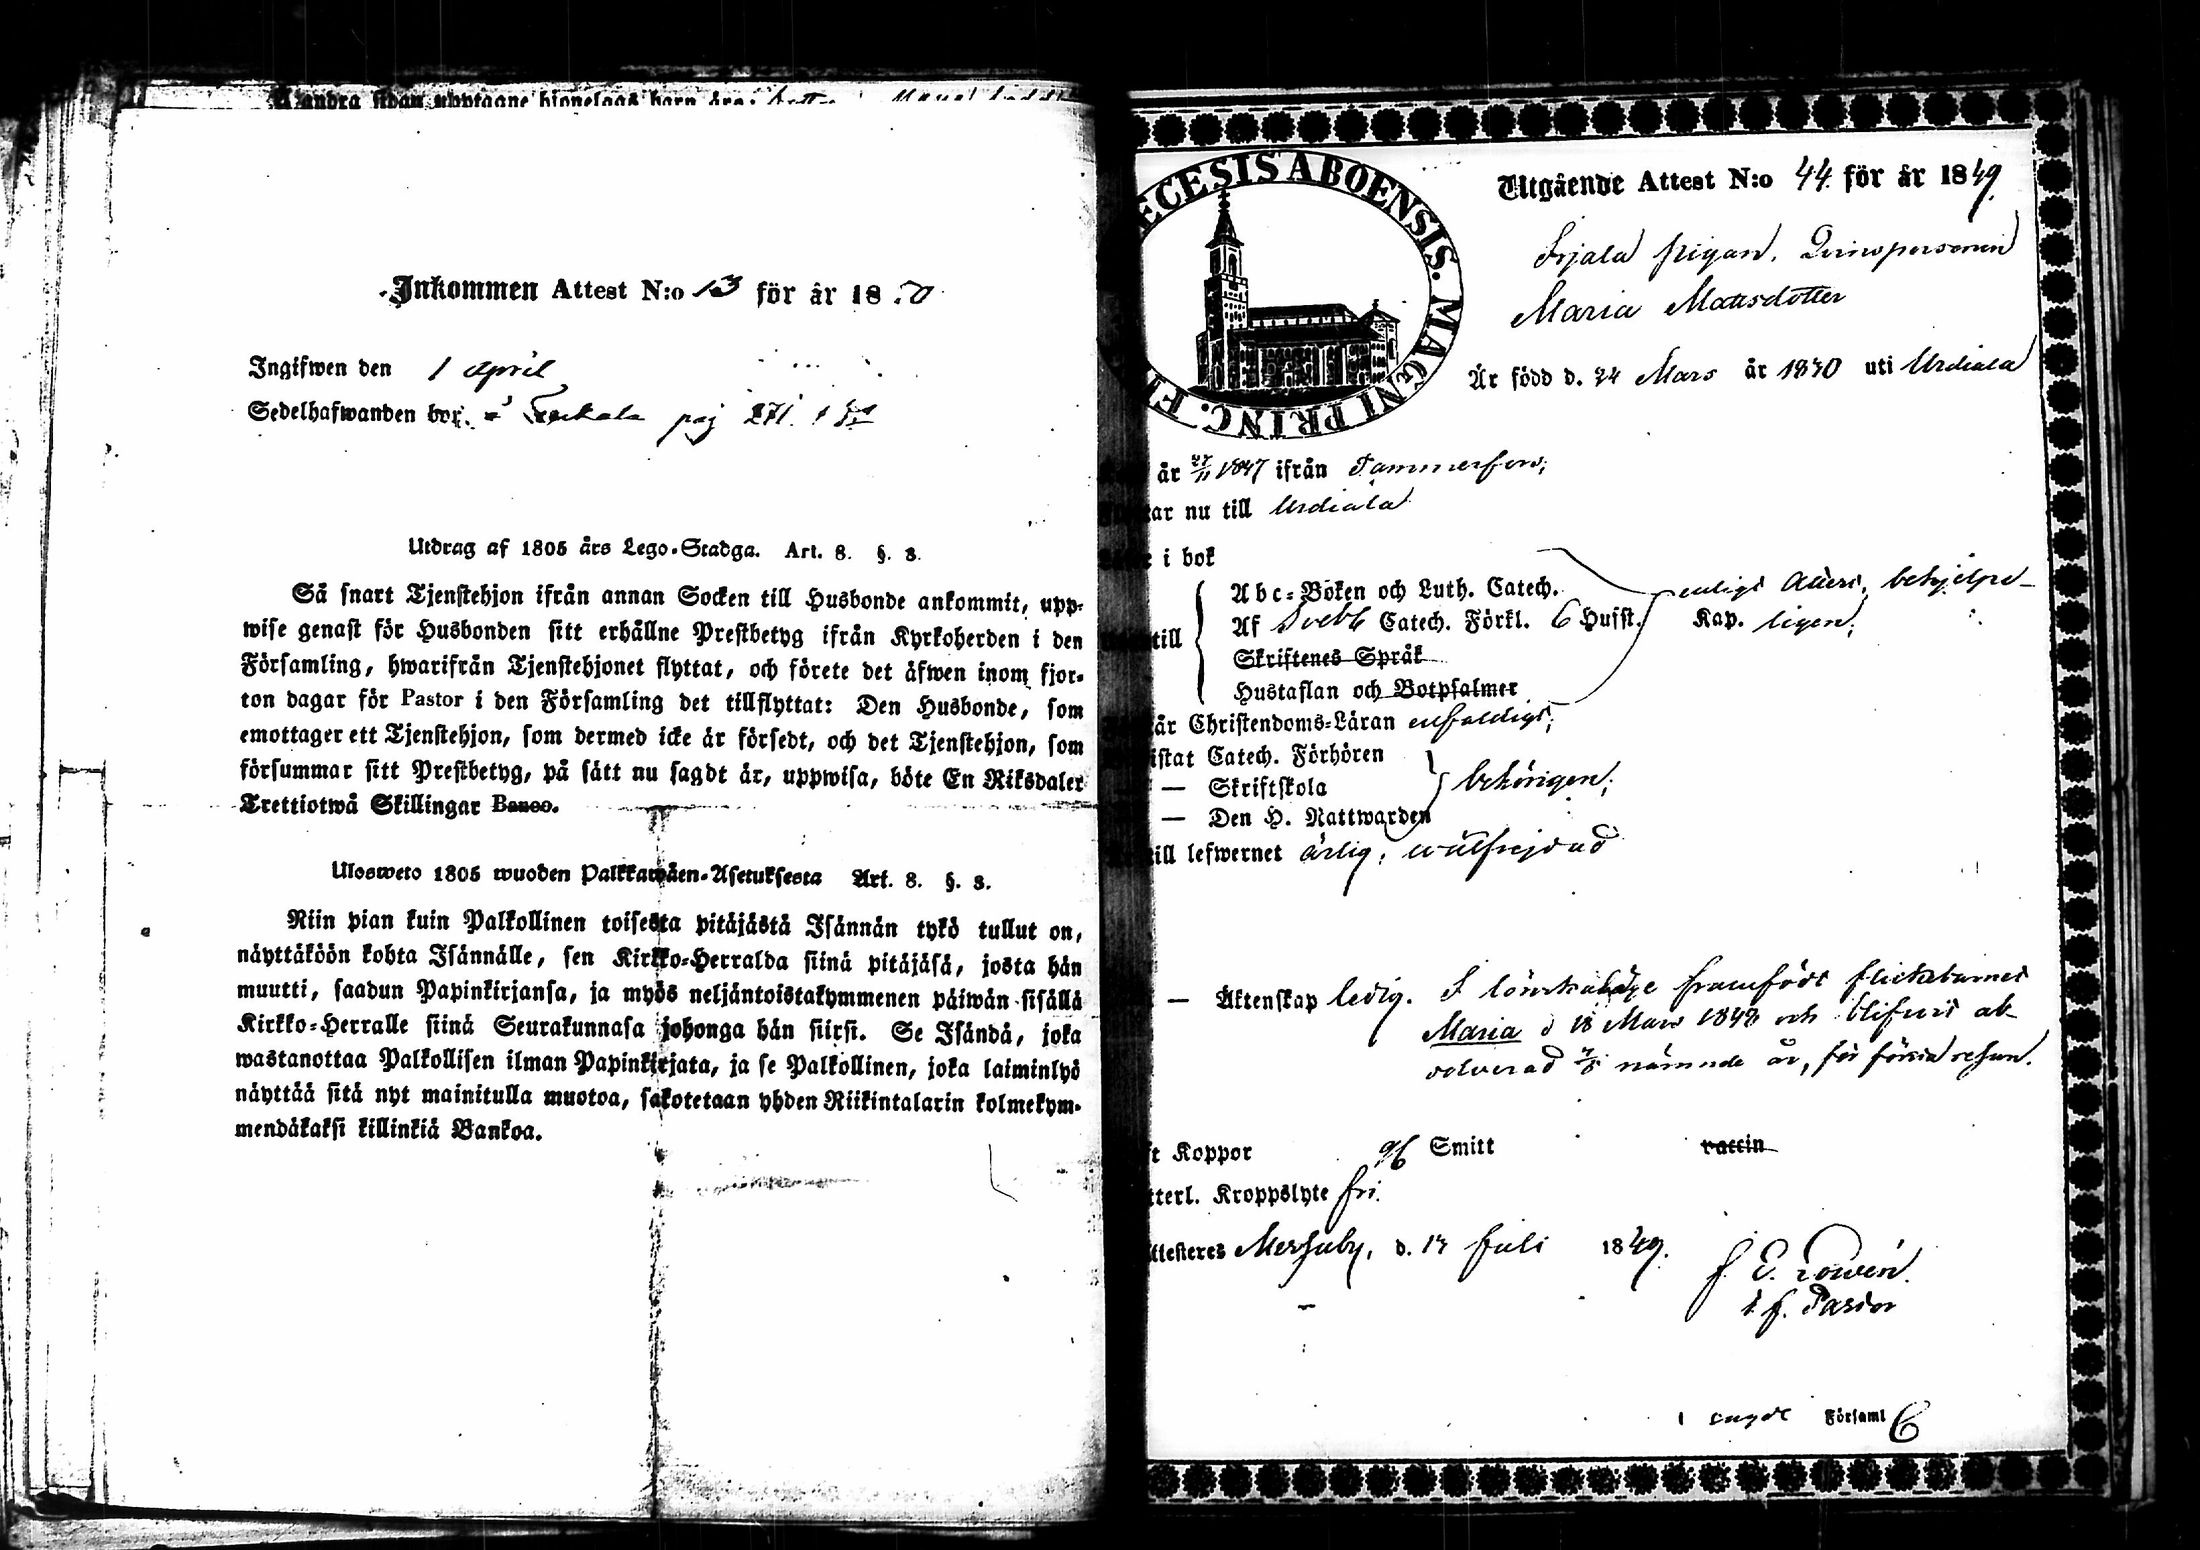 andra sidan upptagne hjonelags barn äro:
Inkommen Attest N:o 13 för år 1850
Ingifwen den 1 April
Sedelhafwanden bor. å pag 271.
Utdrag af 1805 års Lego-Stadga. Art. 8. §. 3.
Så snart Tjenstehjon ifrån annan Socken till Husbonde ankommit, upp-
wise genast för Husbonden sitt erhållne Prestbetyg ifrån Kyrkoherden i den
Församling, hwarifrån Tjenstehjonet flyttat, och förete det äfwen inom fjor-
ton dagar för Pastor i den Församling det tillflyttat: Den Husbonde, som
emottager ett Tjenstehjon, som dermed icke är försedt, och det Tjenstehjon, som
försummar sitt Prestbetyg, på sätt nu sagdt är, uppwisa, böte En Riksdaler
Trettiotwå Skillingar Banco.
Ulosweto 1805 wuoden Palkkawäen-Asetuksesta Art. 8. §. 3.
Niin pian kuin Palkollinen toisesta pitäjästä Isännän tykö tullut on,
näyttäköön kohta Isännälle, sen Kirkko-Herralda siinä pitäjäsä, josta hän
muutti, saadun Papinkirjansa, ja myös neljäntoistakymmenen päiwän sisällä
Kirkko-Herralle siinä Seurakunnasa johonga hän siirsi. Se Isändä, joka
wastanottaa Palkollisen ilman Papinkirjata, ja se Palkollinen, joka laiminlyö
näyttää sitä nyt mainitulla muotoa, sakotetaan yhden Riikintalarin kolmekym-
mendäkaksi killinkiä Bankoa.
ECESIS ABOENSIS. MAGNI PRINC. F
Utgående Attest N:o 44 för år 1849.
pigan, Qvinspersonen
Maria Mattsdotter
Är född d. 24 Mars år 1830 uti Urdiala
år 27/11 1847 ifrån Tammerfors;
ar nu till Urdiala
i bok
Abc-Boken och Luth. Catech. enligt Attest, behjelpe-
till Af Svebb Catech. Förkl. 6 Hufst. Kap. ligen;
Skriftenes Språk
Hustaflan och Botpsalmer
är Christendoms-Läran enfaldigt;
istat Catech. Förhören
— Skriftskola behörigen;
— Den H. Nattwarden
till lefwernet ärlig, wälfrejdad
— Äktenskap ledig. I lönskaläge framfödt flickebarnet
Maria d 18 Mars 1848 och blifvit ab-
solverad nämnde år, för första resan.
t Koppor gh Smitt vaccin
tterl. Kroppslyte fri.
ttesteres Messuby, d. 17 Juli 1849.
J. E. Lowén.
t. f. Pastor
Församl